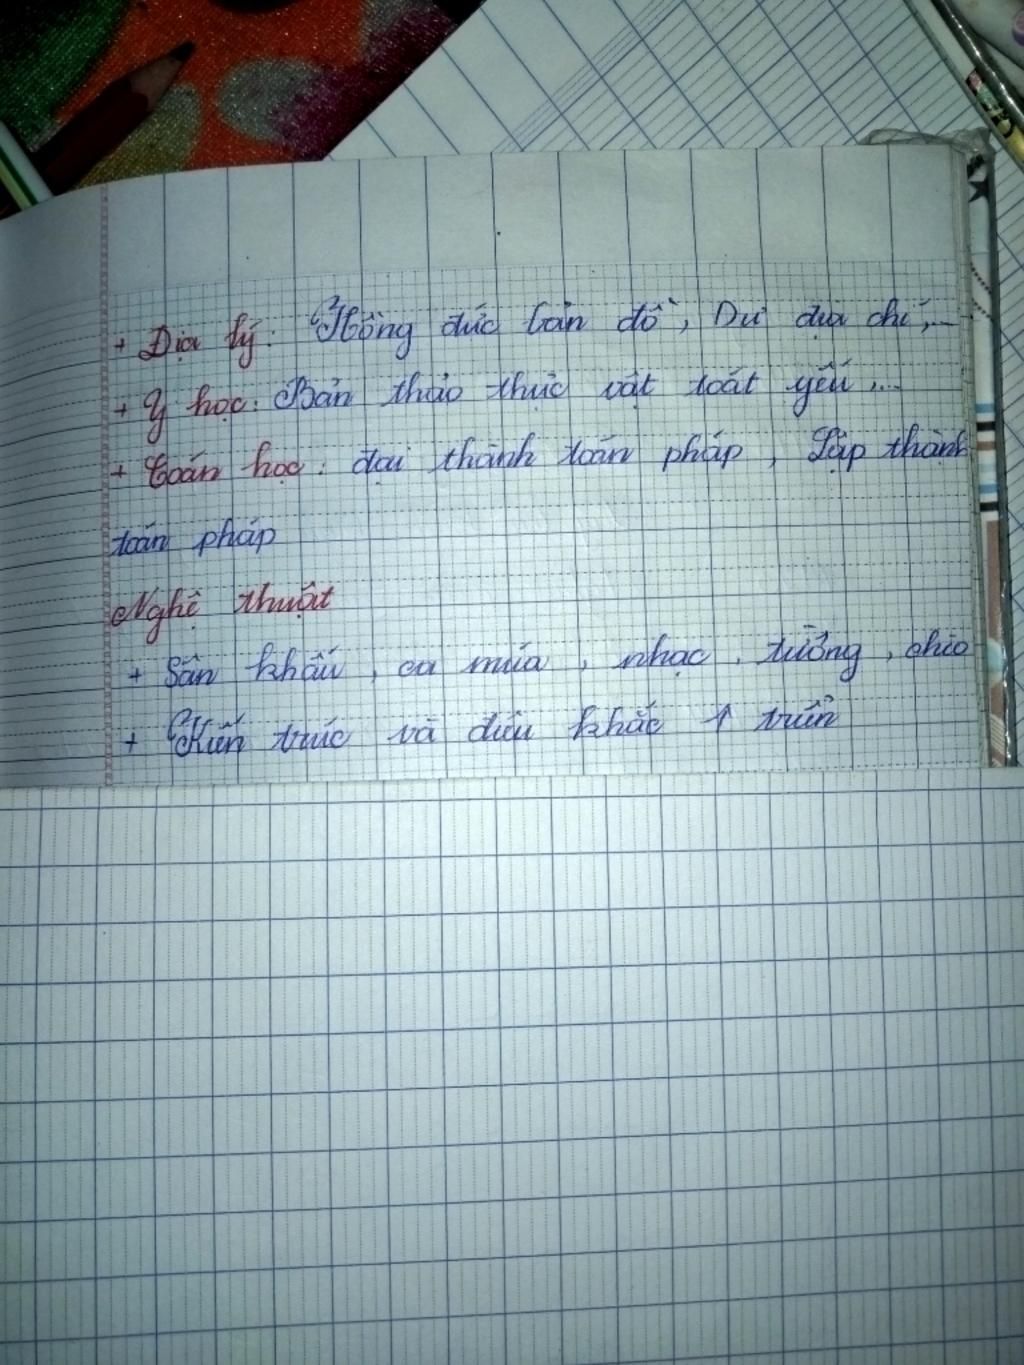 + Địa lý: Hồng đức bản đồ, Dư địa chí,...
+ Y học: Bản thảo thực vật toát yếu,...
+ Toán học: đại thành toán pháp, Lập thành
toán pháp
Nghệ thuật
+ Sân khấu, ca múa, nhạc, tuồng, chèo
+ Kiến trúc và điêu khắc ↑ triển